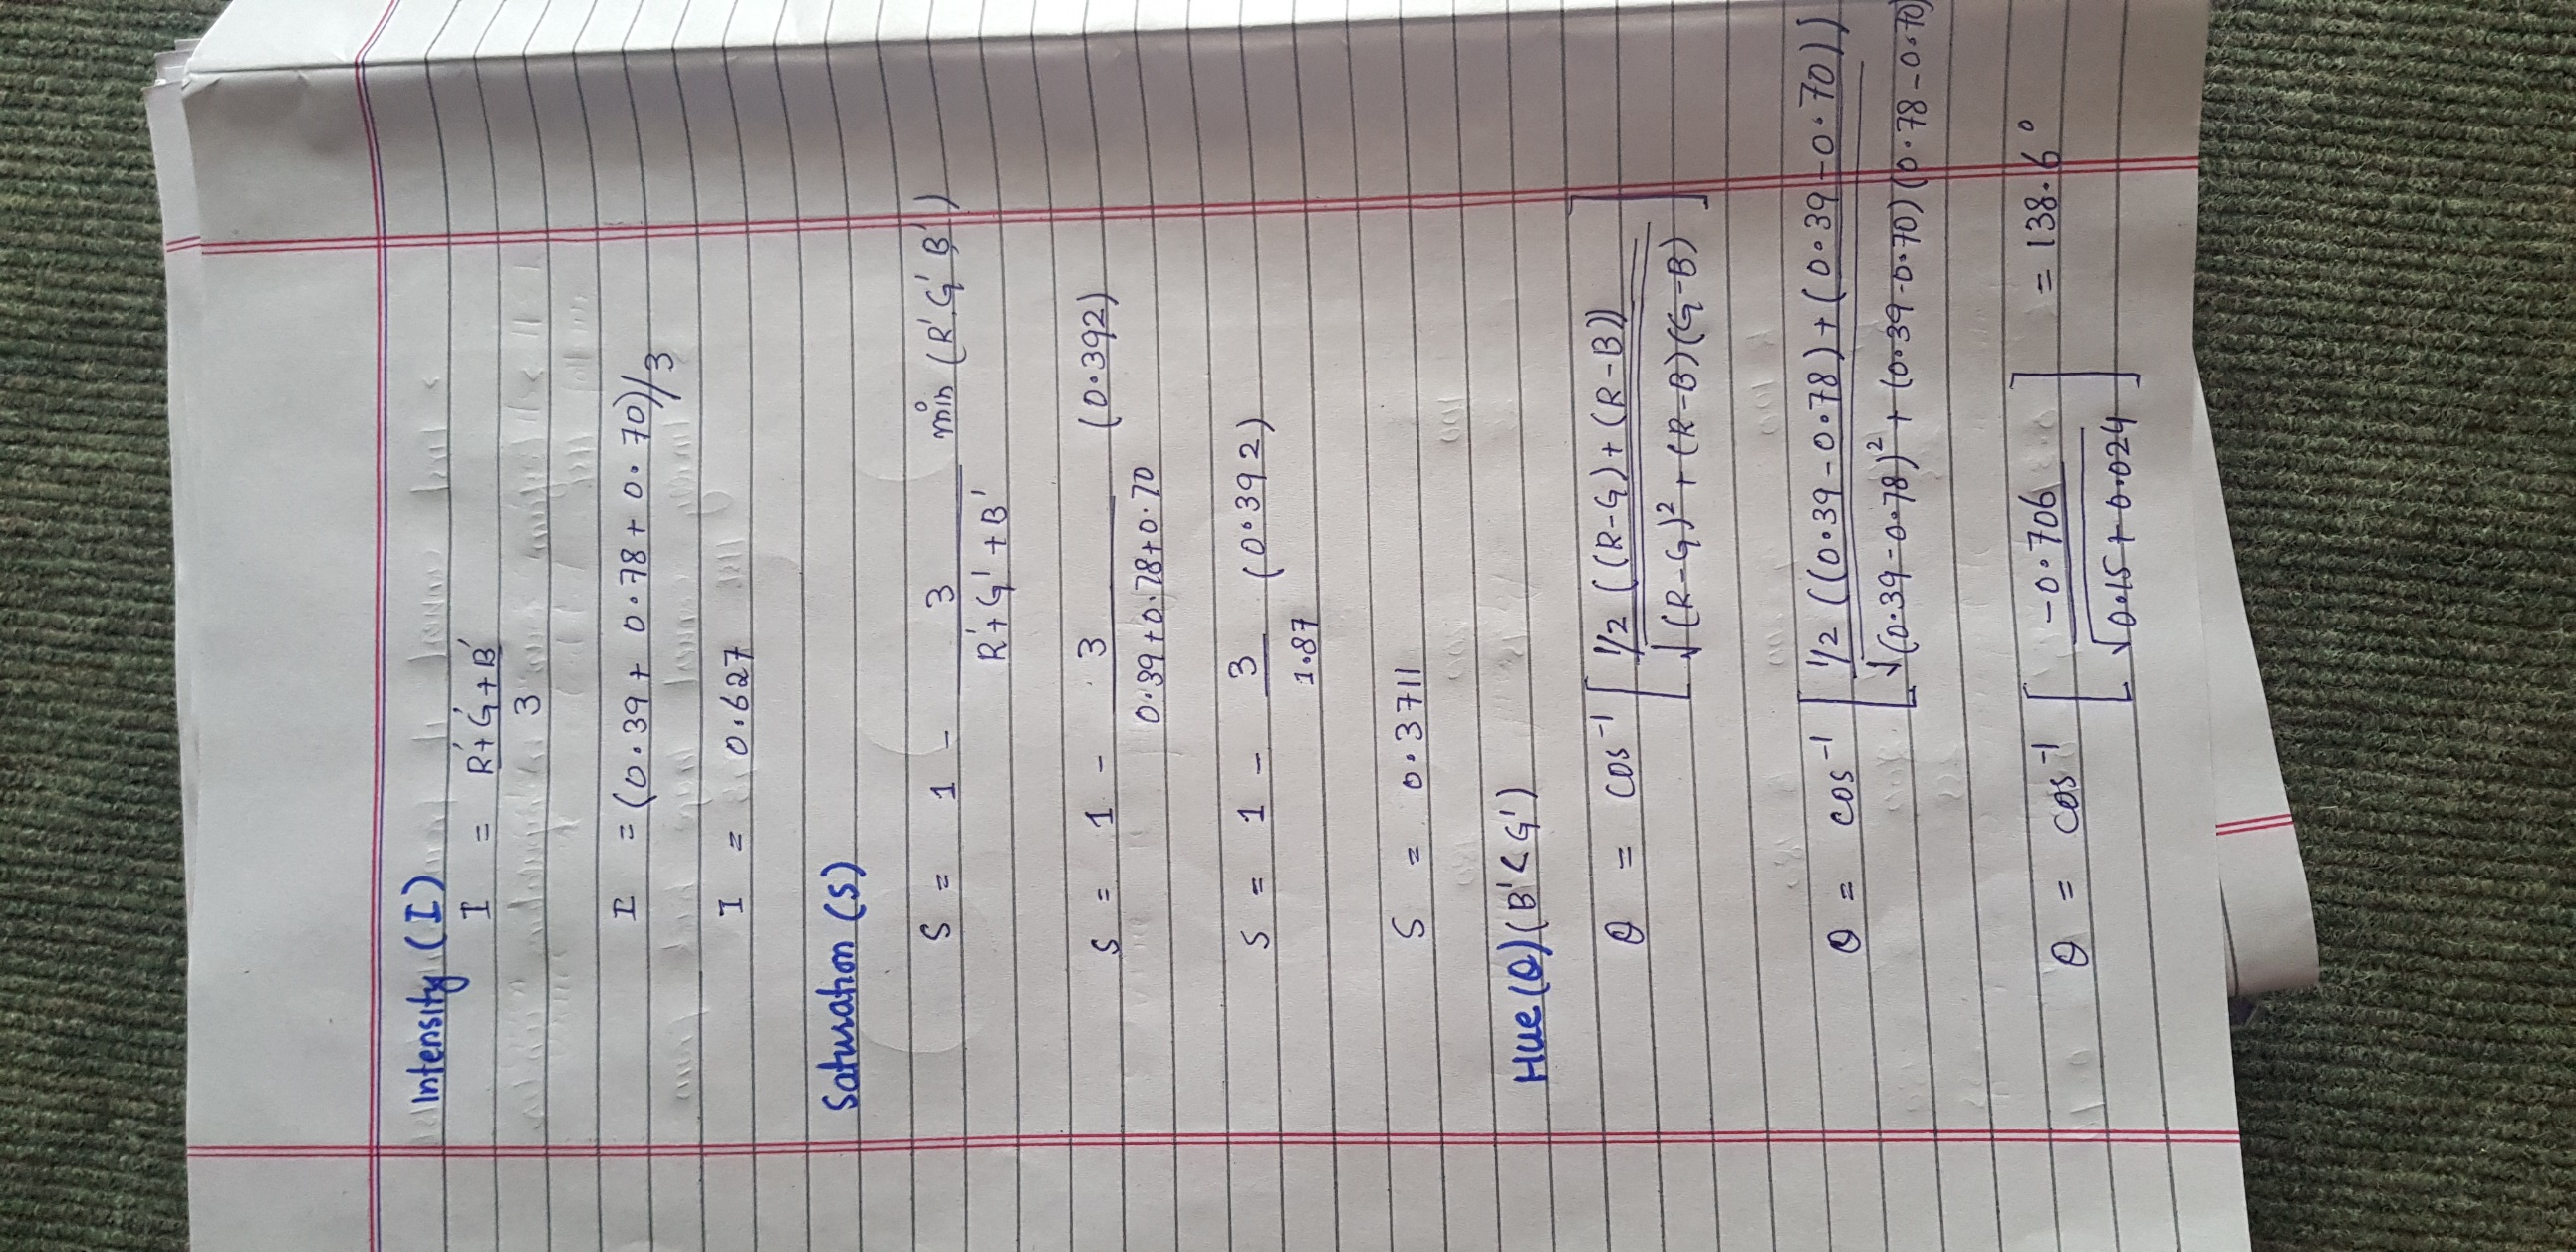 Intensity (I)
I = R'+G'+B'
3
I = (0.39 + 0.78 + 0.70)/3
I = 0.627
Saturation (S)
S = 1 - 3 min (R' G' B')
R'+G'+B'
S = 1 - 3 (0.392)
0.39+0.78+0.70
S = 1 - 3 (0.392)
1.87
S = 0.3711
Hue (θ) (B' < G')
θ = cos⁻¹ [ 1/2 ((R-G)+(R-B))
√(R-G)² + (R-B)(G-B) ]
θ = cos⁻¹ [ 1/2 ((0.39-0.78)+(0.39-0.70))
√(0.39-0.78)² + (0.39-0.70)(0.78-0.70)
θ = cos⁻¹ [ -0.706 ] = 138.6°
√0.15+0.024